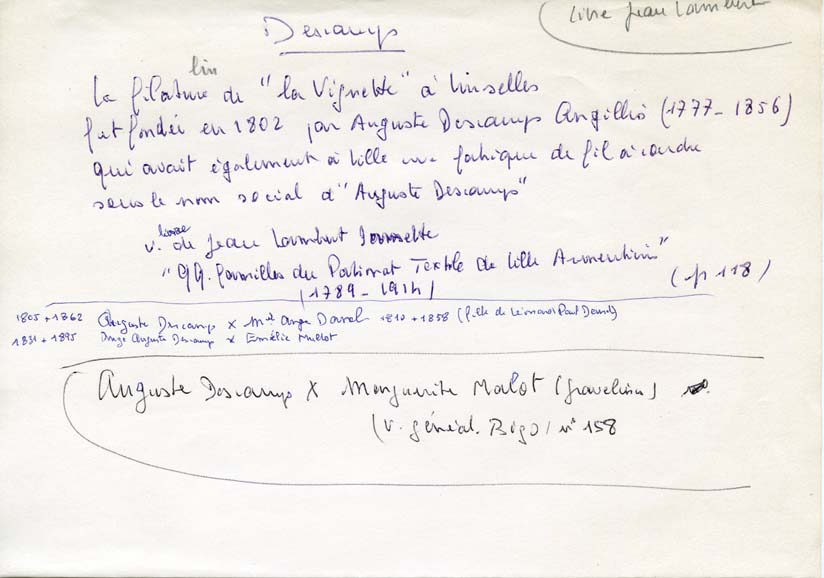 Livre Jean Lambert
Descamps
lin
La filature de "La Vignette" à Linselles
fut fondée en 1802 par Auguste Descamps Angillis (1777-1856)
qui avait également à Lille une fabrique de fil à coudre
sous le nom social d'"Auguste Descamps"
livre
v. de Jean Lambert
"qq. familles du Patronat Textile de Lille Armentières"
(1789-1914)
(p 118)
1805 + 1862 Auguste Descamps x Danel 1810 + 1858 (fille de Léonard Paul Danel)
1831 + 1895 Auguste Descamps x Emélie Mullot
Auguste Descamps x Marguerite Malot (Gravelines)
(v. généal. Bigo) n° 158